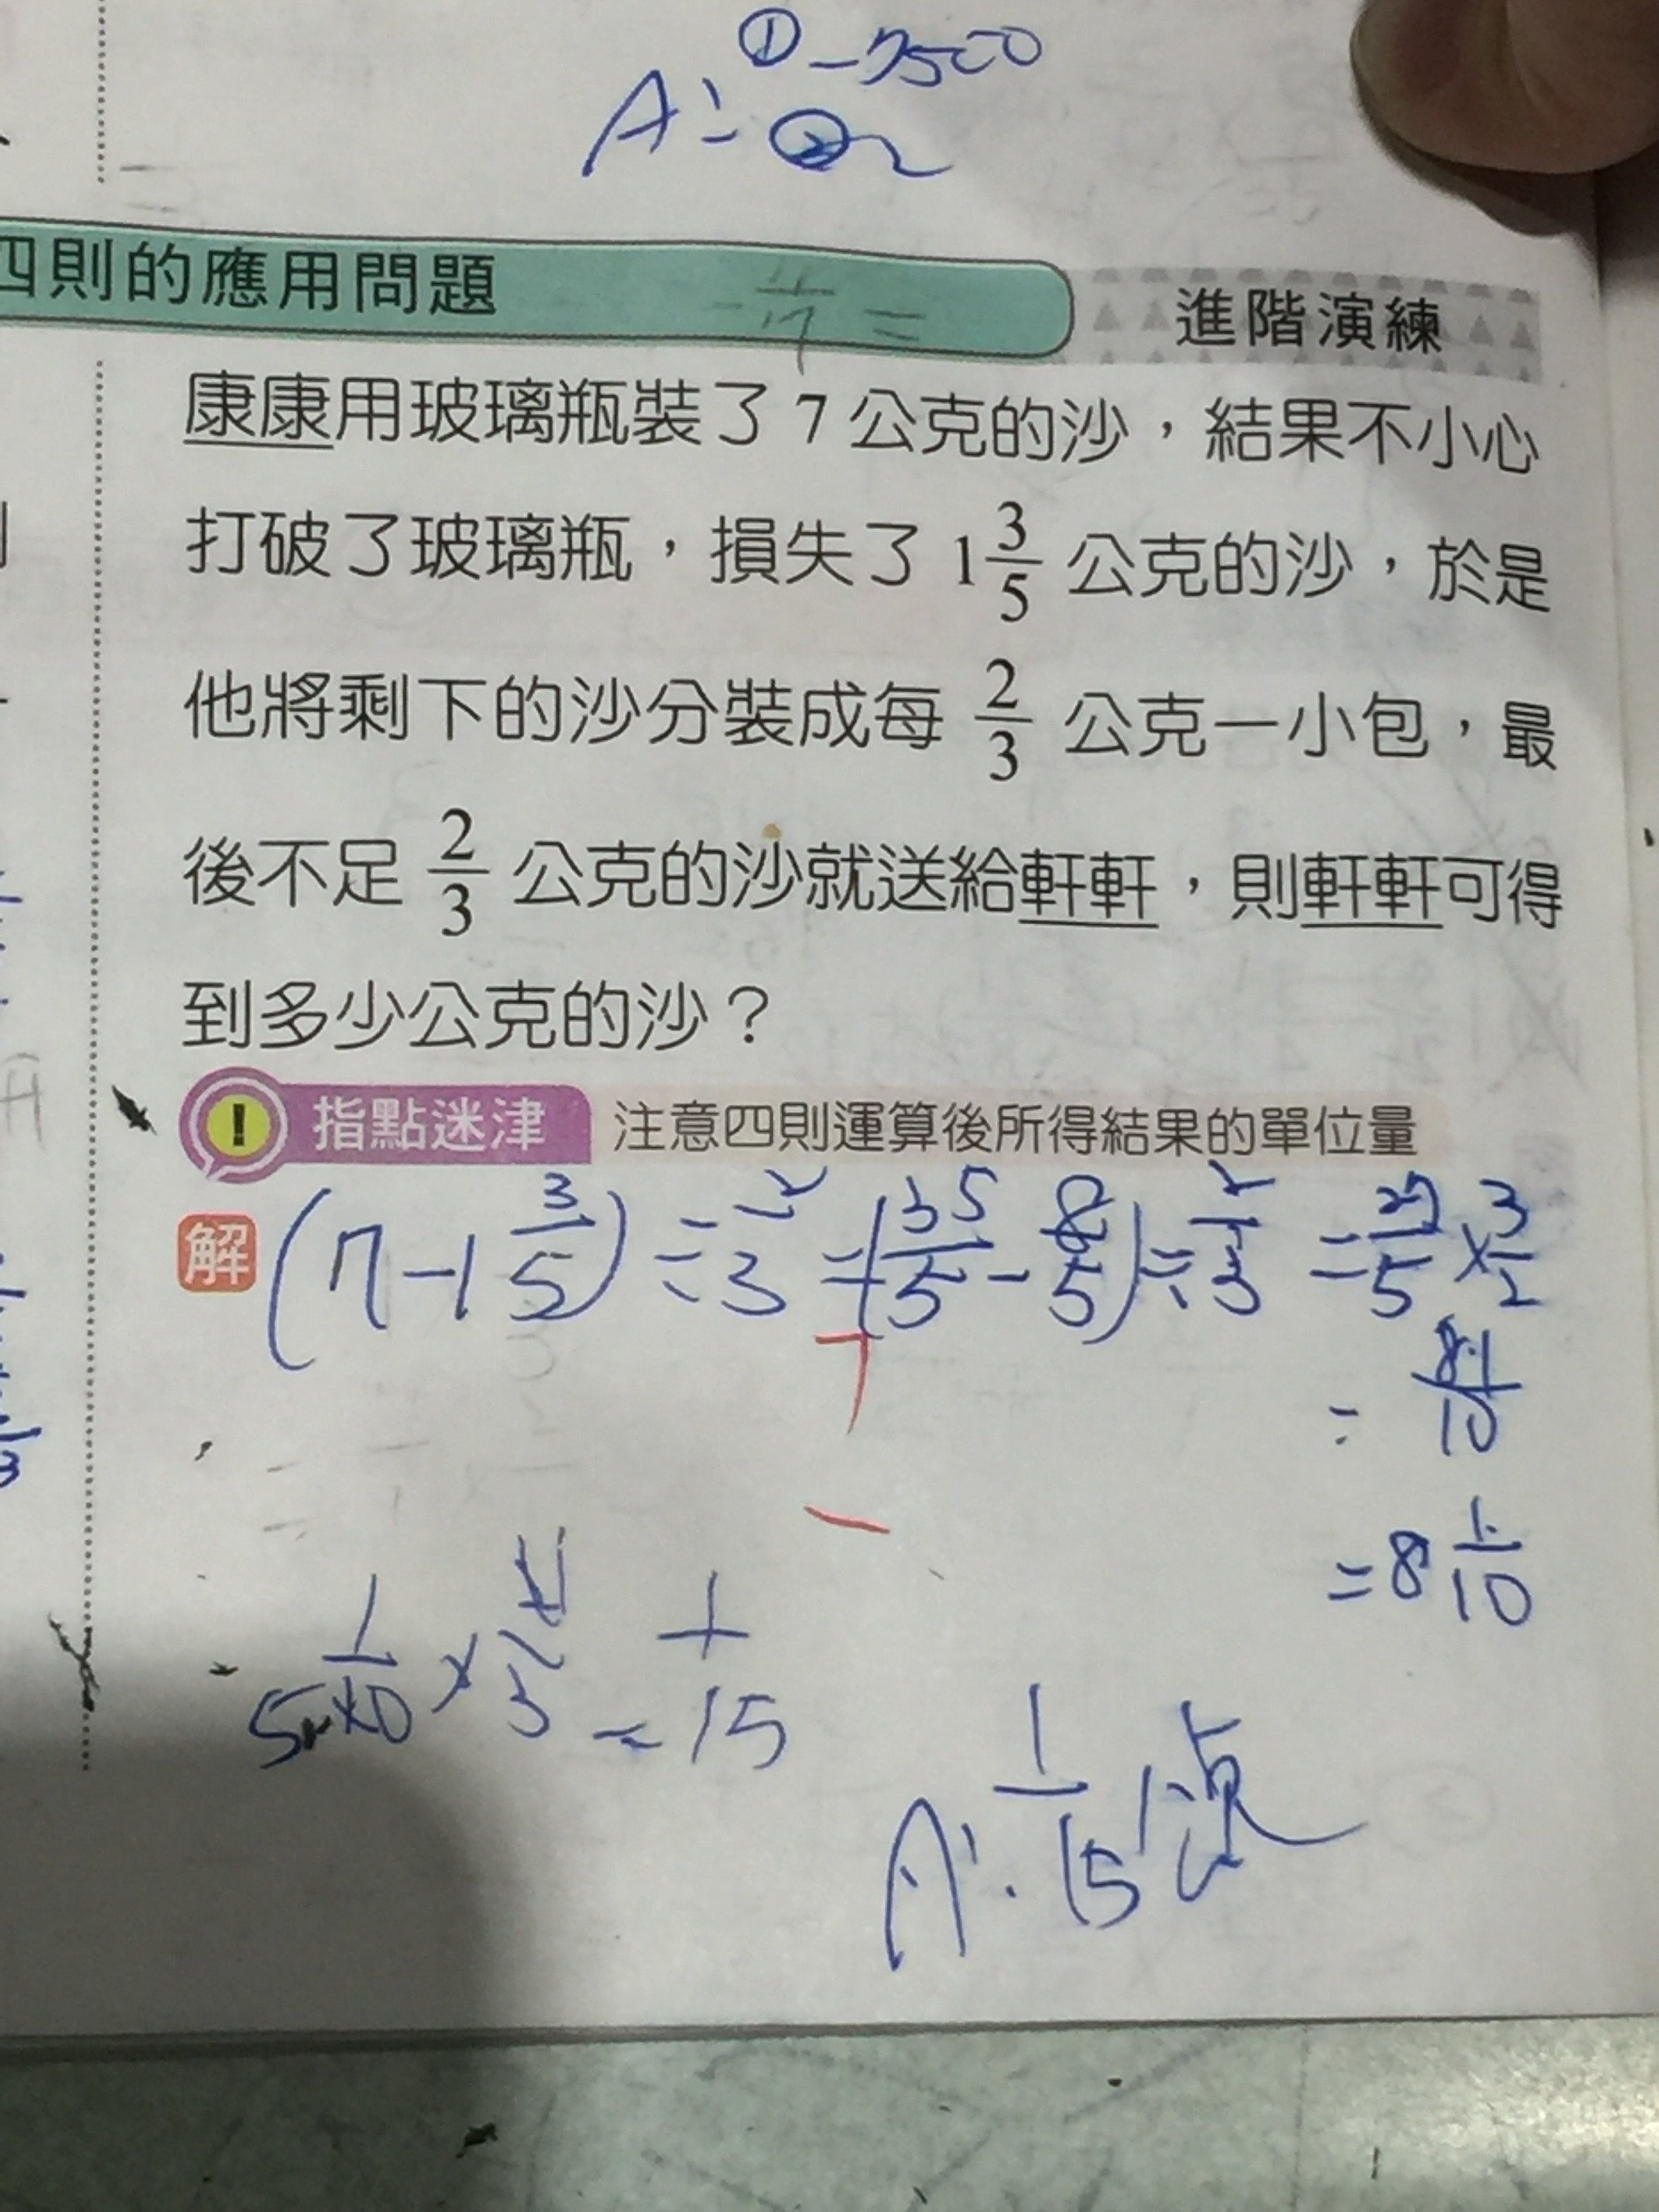 ① -7500
A: ② 2
四則的應用問題
進階演練
康康用玻璃瓶裝了 7 公克的沙，結果不小心
打破了玻璃瓶，損失了 1 3/5 公克的沙，於是
他將剩下的沙分裝成每 2/3 公克一小包，最
後不足 2/3 公克的沙就送給軒軒，則軒軒可得
到多少公克的沙？
! 指點迷津 注意四則運算後所得結果的單位量
解 (7-1 3/5)÷2/3=(35/5-8/5)÷2/3=27/5×3/2
=81/10
=8 1/10
1/10×2/3=1/15
A: 1/15